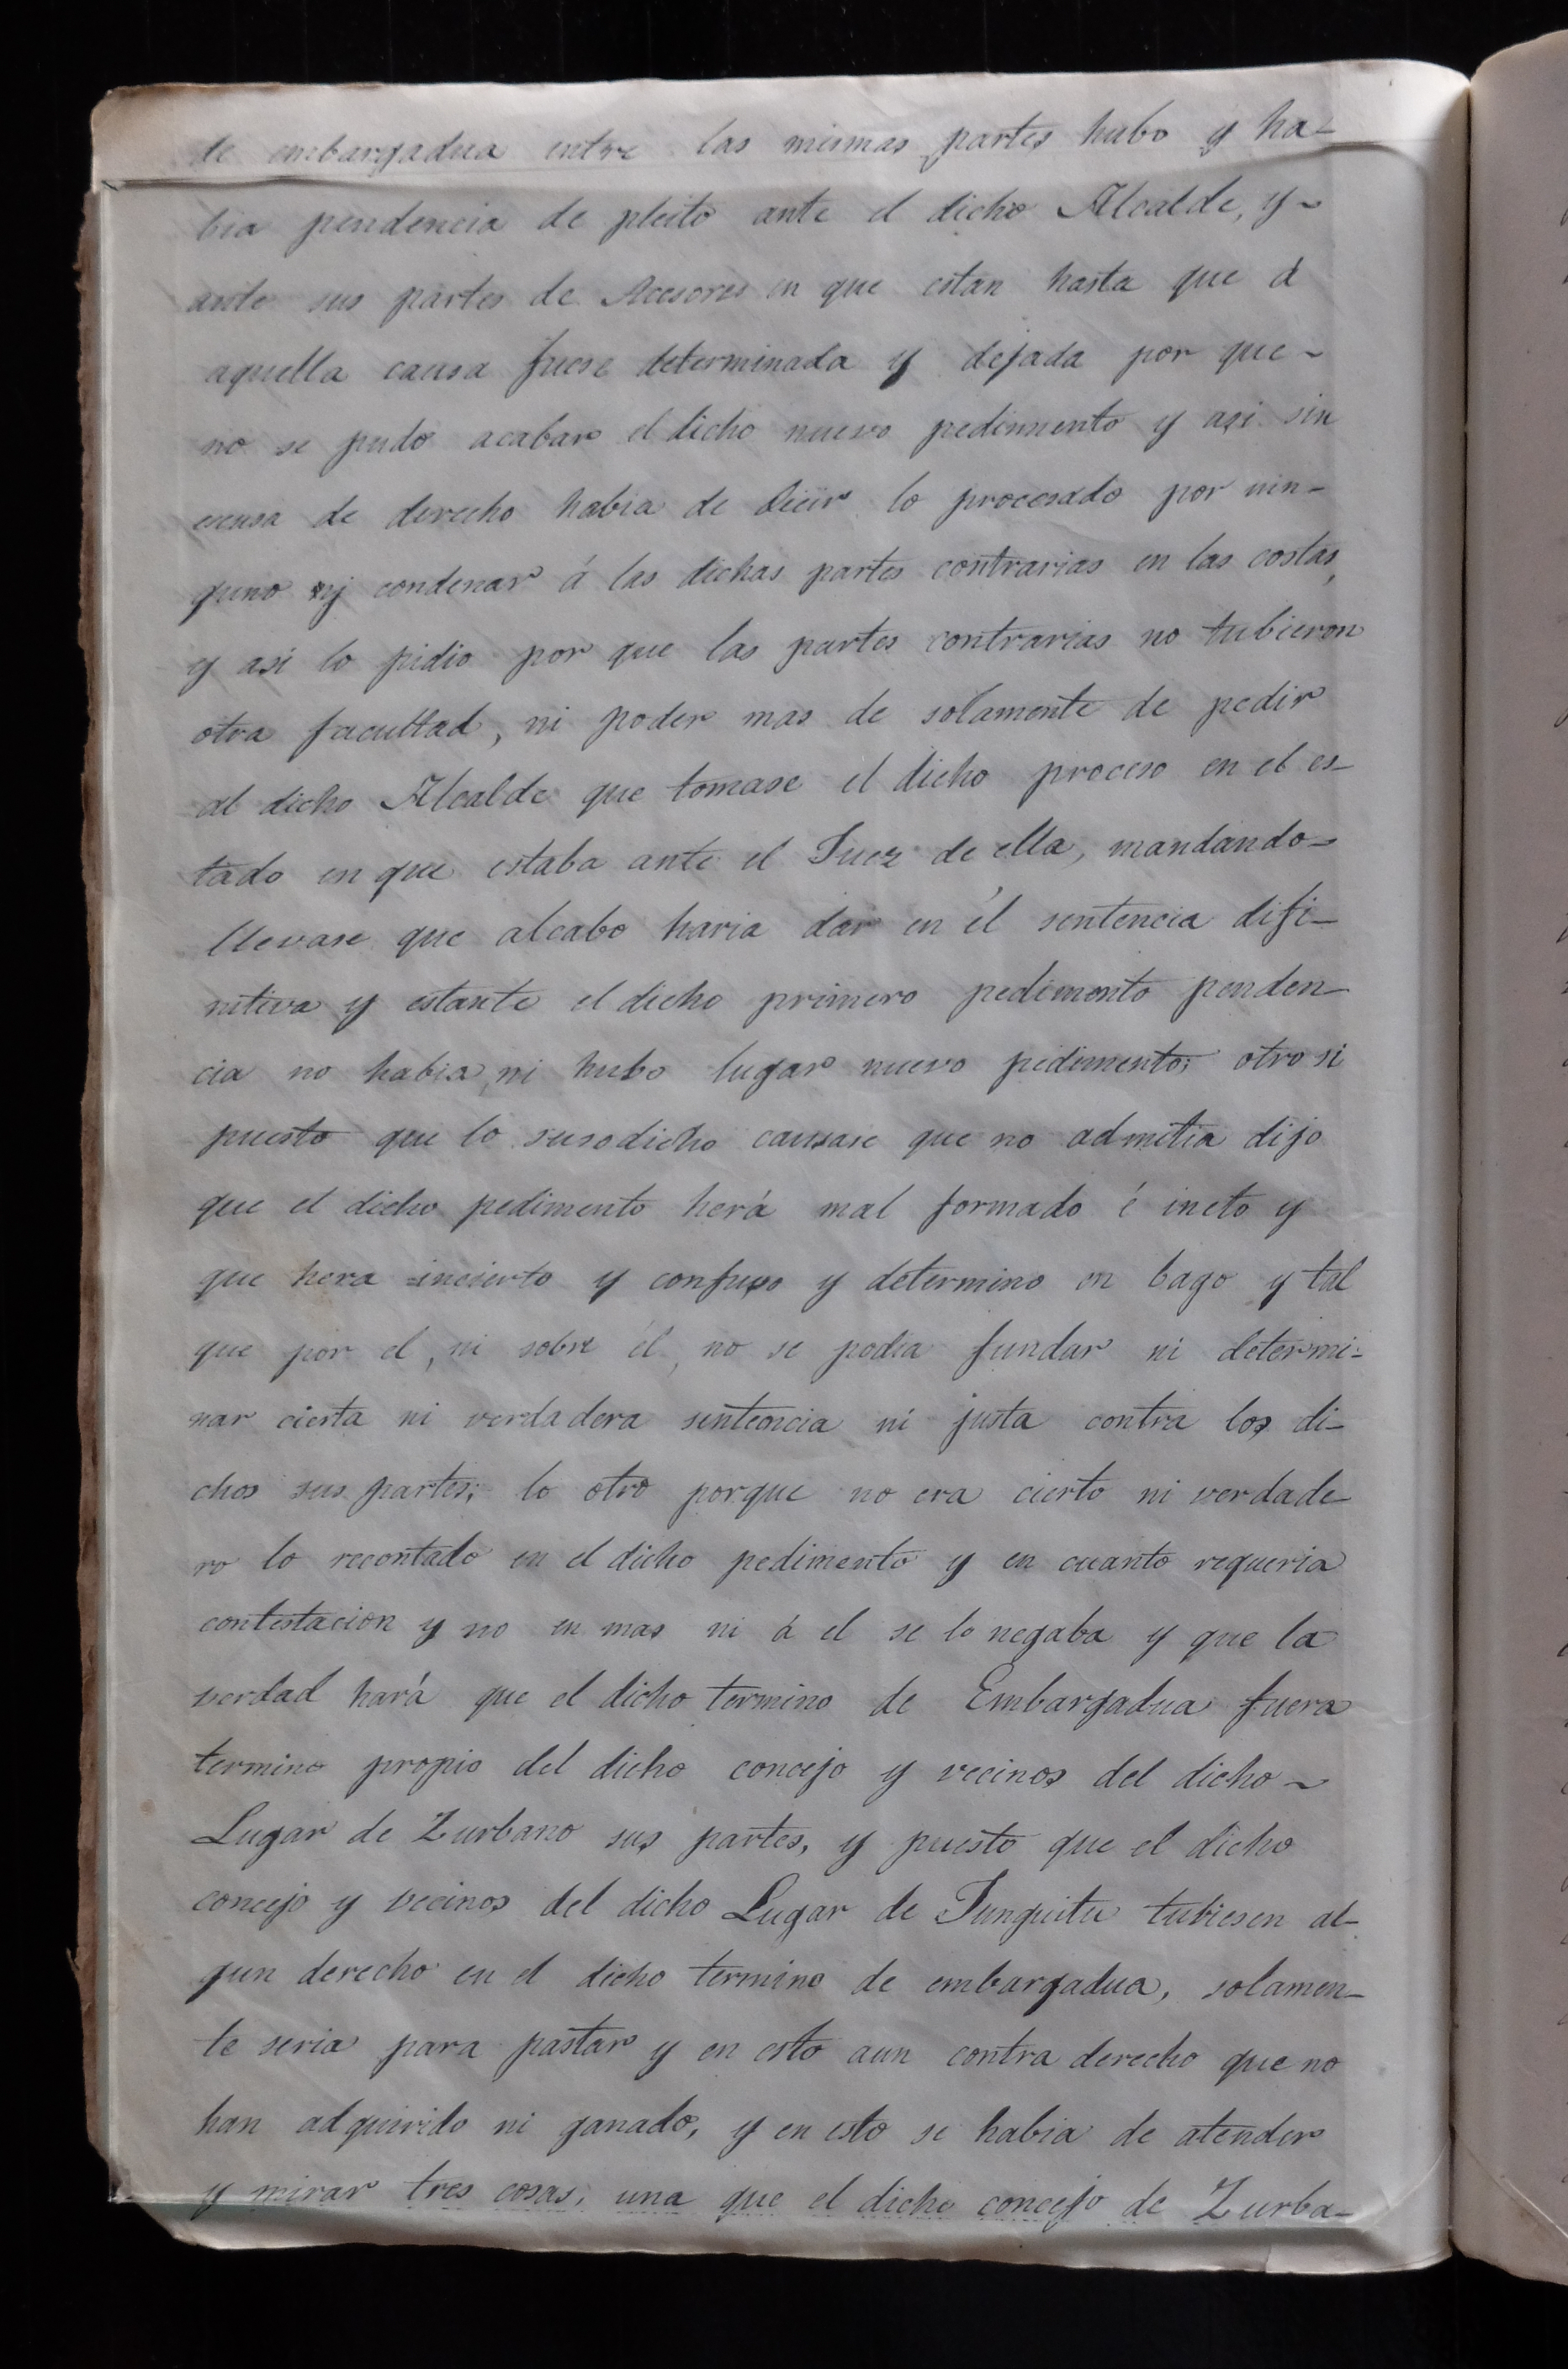 de embargadua entre las mismas partes hubo y ha-
bia pendencia de pleito ante el dicho Alcalde, y-
ante sus partes de Acesores en que estan hasta que á
aquella causa fuese determinada y dejada por que-
no se pudo acabar el dicho nuevo pedimento y asi sin
escusa de derecho habia de decir lo procesado por nin-
guno y condenar á las dichas partes contrarias en las costas,
y asi lo pidio por que las partes contrarias no tubieron
otra facultad, ni poder mas de solamente de pedir
al dicho Alcalde que tomase el dicho proceso en el es-
tado en que estaba ante el Juez de ella, mandando-
llevase que alcabo haria dar en él sentencia difi-
nitiva y estante el dicho primero pedimento penden-
cia no habia, ni hubo lugar nuevo pedimento; otro si
puesto que lo susodicho causase que no admitia dijo
que el dicho pedimento herá mal formado é ineto y
que hera incierto y confuso y determino en bago y tal
que por el, ni sobre él, no se podia fundar ni determi-
nar cierta ni verdadera sentencia ni justa contra los di-
chos sus partes; lo otro porque no era cierto ni verdade-
ro lo recontado en el dicho pedimento y en cuanto requeria
contestacion y no en mas ni á el se lo negaba y que la
verdad hará que el dicho termino de Embargadua fuera
termino propio del dicho concejo y vecinos del dicho-
Lugar de Zurbano sus partes, y puesto que el dicho
concejo y vecinos del dicho Lugar de Junguitu tubiesen al-
gun derecho en el dicho termino de embargadua, solamen-
te seria para pastar y en esto aun contra derecho que no
han adquirido ni ganado, y en esto se habia de atender
y mirar tres cosas, una que el dicho concejo de Zurba-